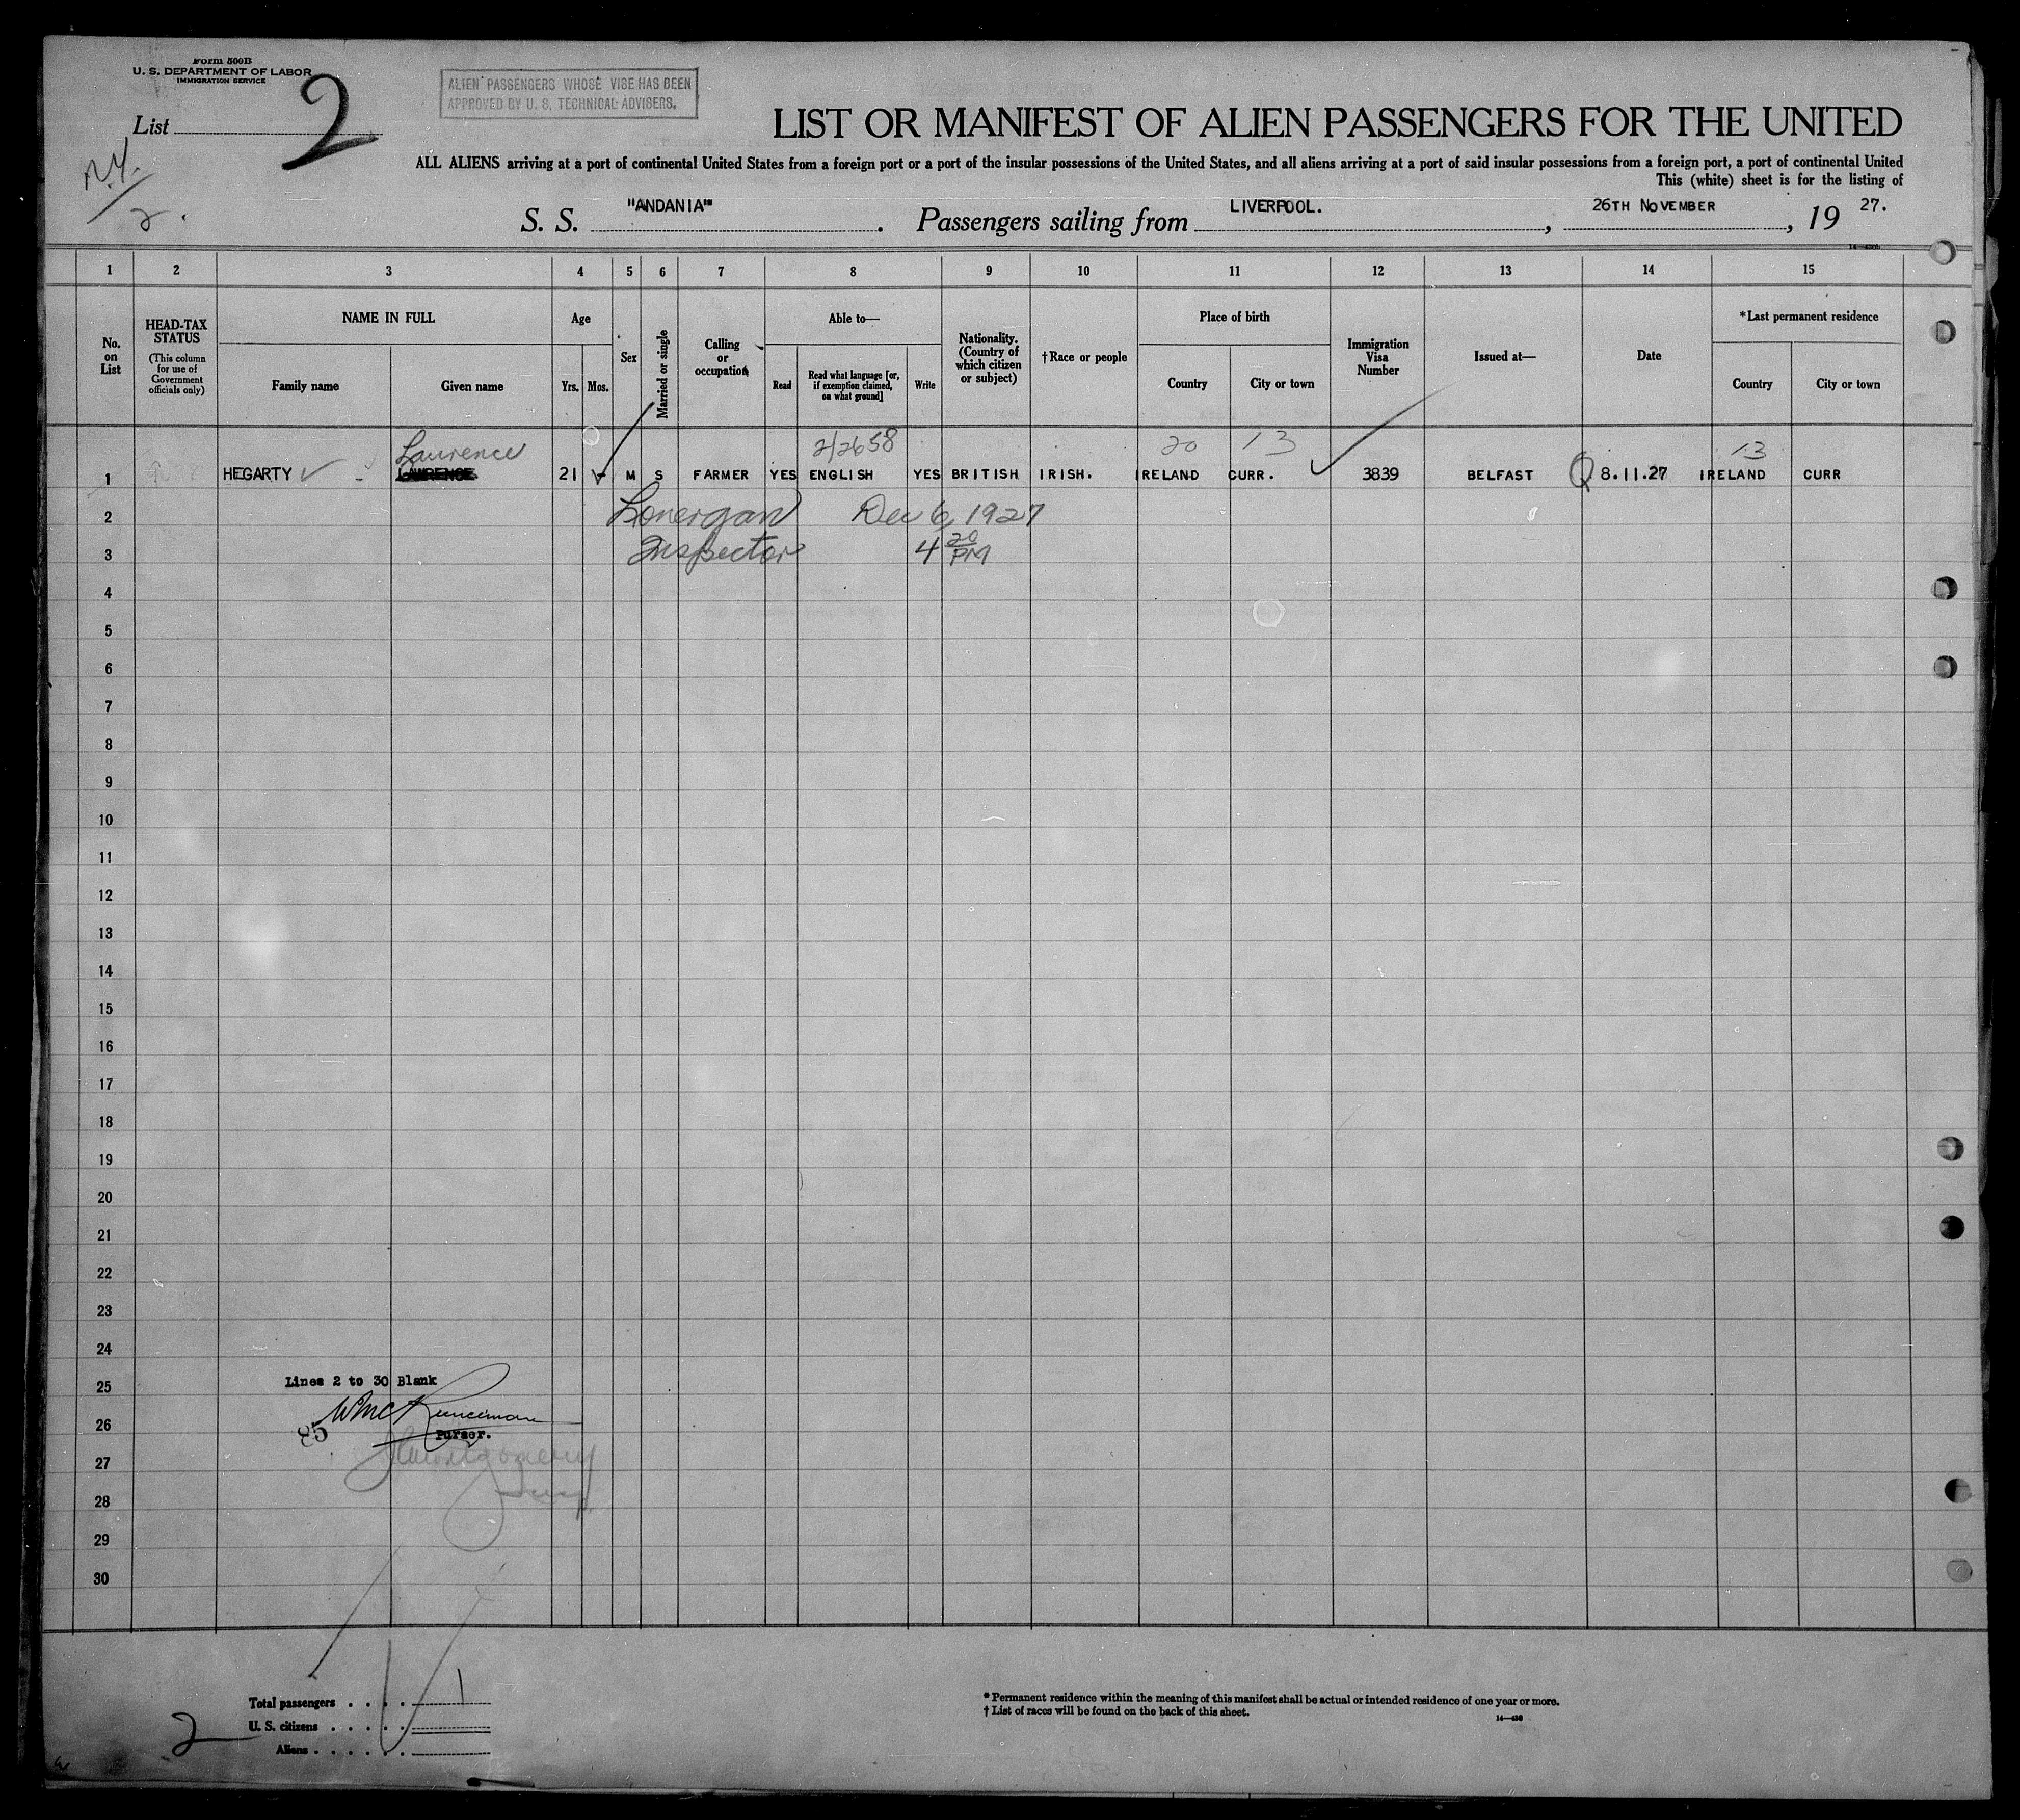 Form 500B
U. S. DEPARTMENT OF LABOR
IMMIGRATION SERVICE
List 2
N.Y.
2.
ALIEN PASSENGERS WHOSE VISE HAS BEEN
APPROVED BY U. S. TECHNICAL ADVISERS.
LIST OR MANIFEST OF ALIEN PASSENGERS FOR THE UNITED
ALL ALIENS arriving at a port of continental United States from a foreign port or a port of the insular possessions of the United States, and all aliens arriving at a port of said insular possessions from a foreign port, a port of continental United
This (white) sheet is for the listing of
S. S. "ANDANIA" . Passengers sailing from LIVERPOOL. , 26TH NOVEMBER , 19 27.
1 2 3 4 5 6 7 8 9 10 11 12 13 14 15
No. on List
HEAD-TAX STATUS
(This column for use of Government officials only)
NAME IN FULL
Family name
Given name
Age
Yrs.
Mos.
Sex
Married or single
Calling or occupation
Able to—
Read
Read what language [or, if exemption claimed, on what ground]
Write
Nationality. (Country of which citizen or subject)
†Race or people
Place of birth
Country
City or town
Immigration Visa Number
Issued at—
Date
*Last permanent residence
Country
City or town
Laurence 2/2658 20 13 13
1 HEGARTY LAWRENCE 21 M S FARMER YES ENGLISH YES BRITISH IRISH. IRELAND CURR. 3839 BELFAST Q 8.11.27 IRELAND CURR
2 Lonergan Dec 6, 1927
3 Inspector 4 20 PM
4
5
6
7
8
9
10
11
12
13
14
15
16
17
18
19
20
21
22
23
24
Lines 2 to 30 Blank
25
26
85
Purser.
27
Montgomery
28
29
30
Total passengers . . . . 1
U. S. citizens . . . . .
Aliens . . . . . .
2
*Permanent residence within the meaning of this manifest shall be actual or intended residence of one year or more.
† List of races will be found on the back of this sheet.
14—430